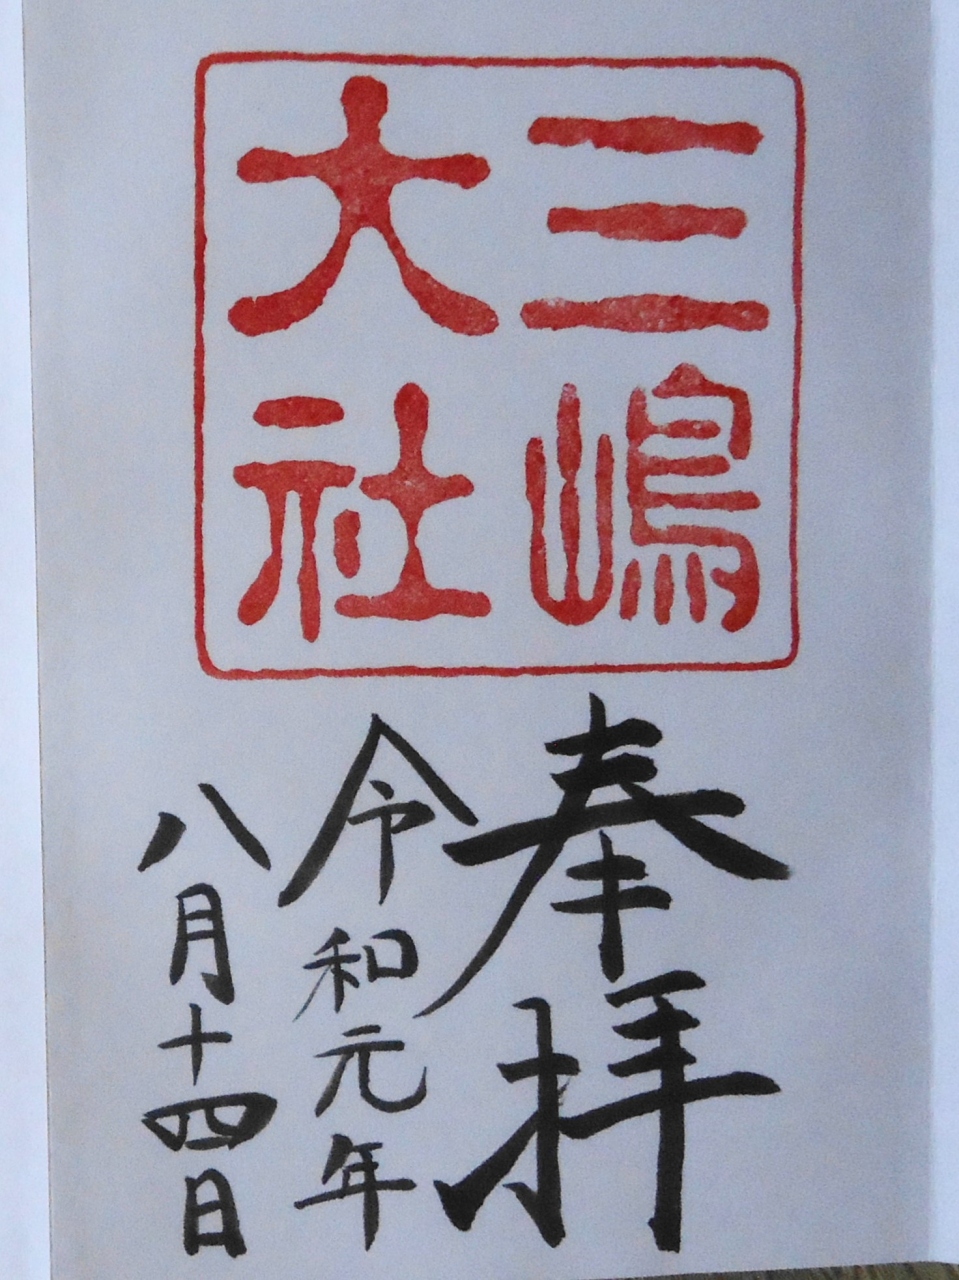 三嶋
大社
奉拝
令和元年
八月十四日